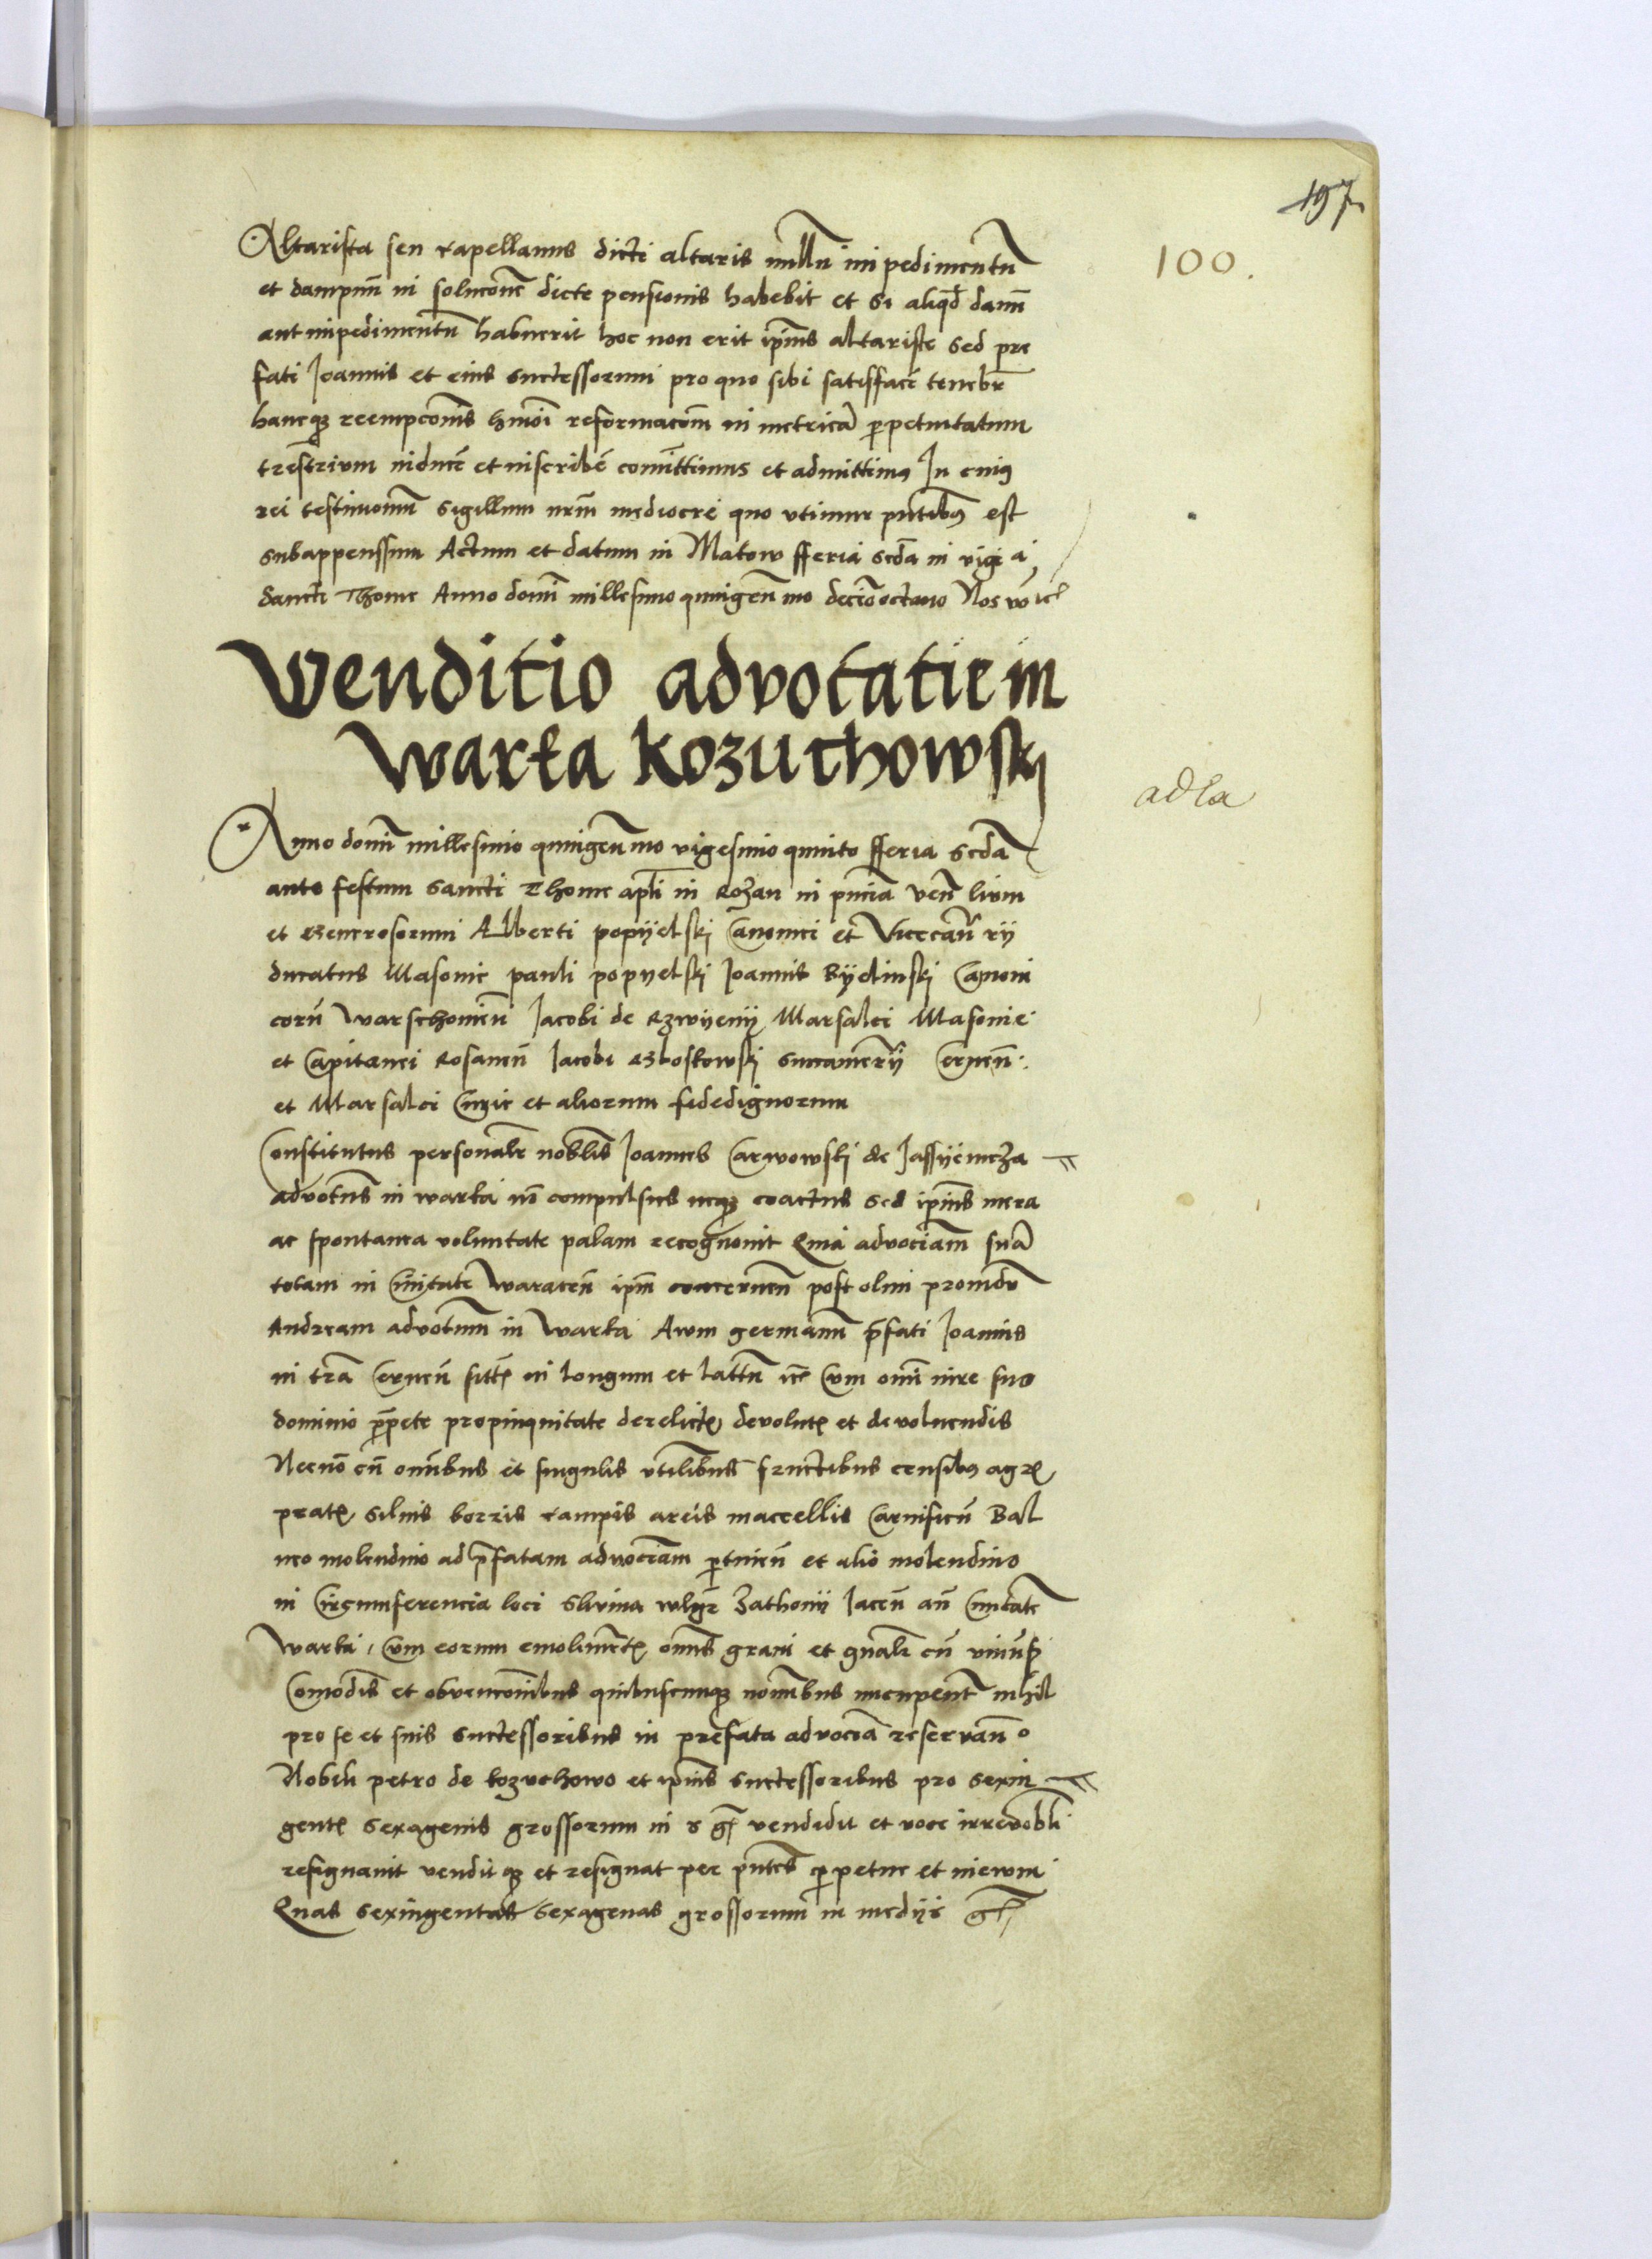 197
100.
Altarista seu capellanus dicti altaris nullu impedimentu
et dampnu in soluconē dicte pensionis habebit et si aliqd damn
aut impedimentu habuerit hoc non erit ipius altariste sed pre
fati Joannis et eius successorum pro quo sibi satisffacē tenebr
hancq reempconis hmoi reformacom in metrica perpetuitatum
trestrium inducē et inscribē comittimus et admittimus In cuius
rei testimonium sigillum nrm mediocre quo utimur pntibus est
subappenssum Actum et datum in Makow fferia scda in vigi a
Sancti Thome Anno domi millesimo quingen mo decimooctavo Nos
Wenditio advocatie in
Warka Kozuchowski
adla
Anno domi millesimo quingen mo vigesimo quinto fferia scda
ante festum Sancti Thome apli in Rozan in pncia ven lium
et Generosorum Alberti popijelskj Canonici et Vicecan rij
ducatus Masovie pauli popyelskj Joannis Byelinskj Canoni
coru Warschovien Jacobi de Rzwyenij Marsalci Masovie
et Capitanei Rosanen Jacobi Gloskowskj succamerij Cernen
et Marsalci Curie et aliorum fidedignorum
Constitutus personalr noblis Joannes Carwowskj de Jassijencza
advocatus in warka no compulsus neq coactus sed ipius mera
ac spontanea voluntate palam recognovit Quia advociam sua
totam in Civitate Waracen ipm concernen post olim providu
Andream advocatum in Warka Avum germanu pfati Joannis
in tra Cernen sitt in longum et lattu ite Cum omi iure suo
dominio ppete propinquitate derelict devolut et devoluendis
Necno cu omibus et singulis utilibus fructibus censibus agr
prat siluis borris campis areis maccellis Carnificu Bal
neo molendino ad pfatam advociam ptinen et alio molendino
in Circumferencia loci vlgr Zathonij Jacen an Civitate
Warka Cum eorum emoliment omis grani et gnalr cu univs
Comodis et obvenconibus quibuscumq noibus nucupent nihil
pro se et suis successoribus in prefata advocia reservan o
Nobili petro de kozuchowo et ipius successoribus pro sexin
gent sexagenis grossorum in s g vendidit et voce irrevobli
resignavit vendit q et resignat per pntes perpetue et in evum
Quas sexingentas sexagenas grossorum in medijs g